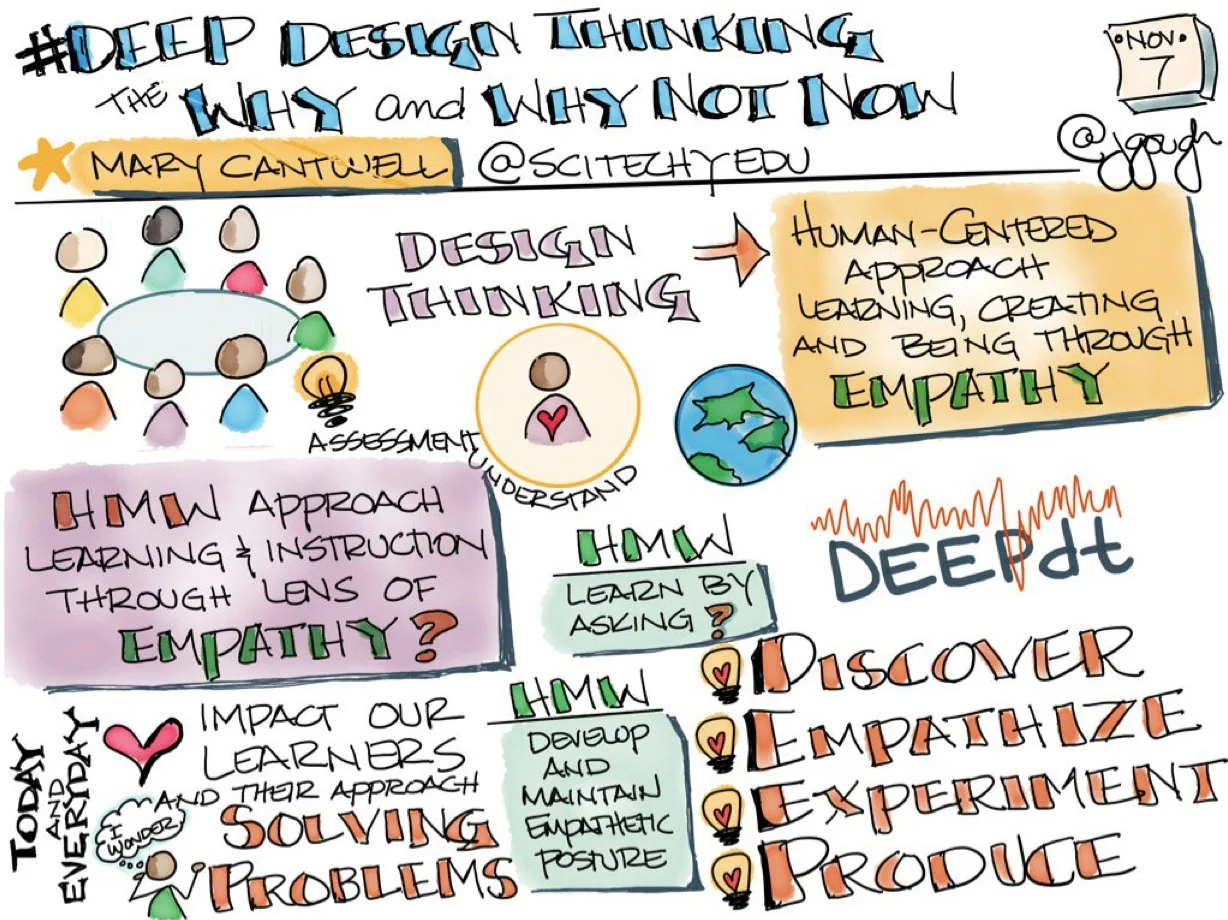 #DEEP DESIGN THINKING
THE WHY and WHY NOT NOW
•NOV•
7
@jgough
MARY CANTWELL @SCITECHYEDU
DESIGN
THINKING
HUMAN-CENTERED
APPROACH
LEARNING, CREATING
AND BEING THROUGH
EMPATHY
ASSESSMENT
UNDERSTAND
HMW APPROACH
LEARNING & INSTRUCTION
THROUGH LENS OF
EMPATHY?
HMW
LEARN BY
ASKING?
DEEPdt
DISCOVER
EMPATHIZE
EXPERIMENT
PRODUCE
TODAY
AND
EVERYDAY
IMPACT OUR
LEARNERS
AND THEIR APPROACH
SOLVING
PROBLEMS
I
WONDER
HMW
DEVELOP
AND
MAINTAIN
EMPATHETIC
POSTURE